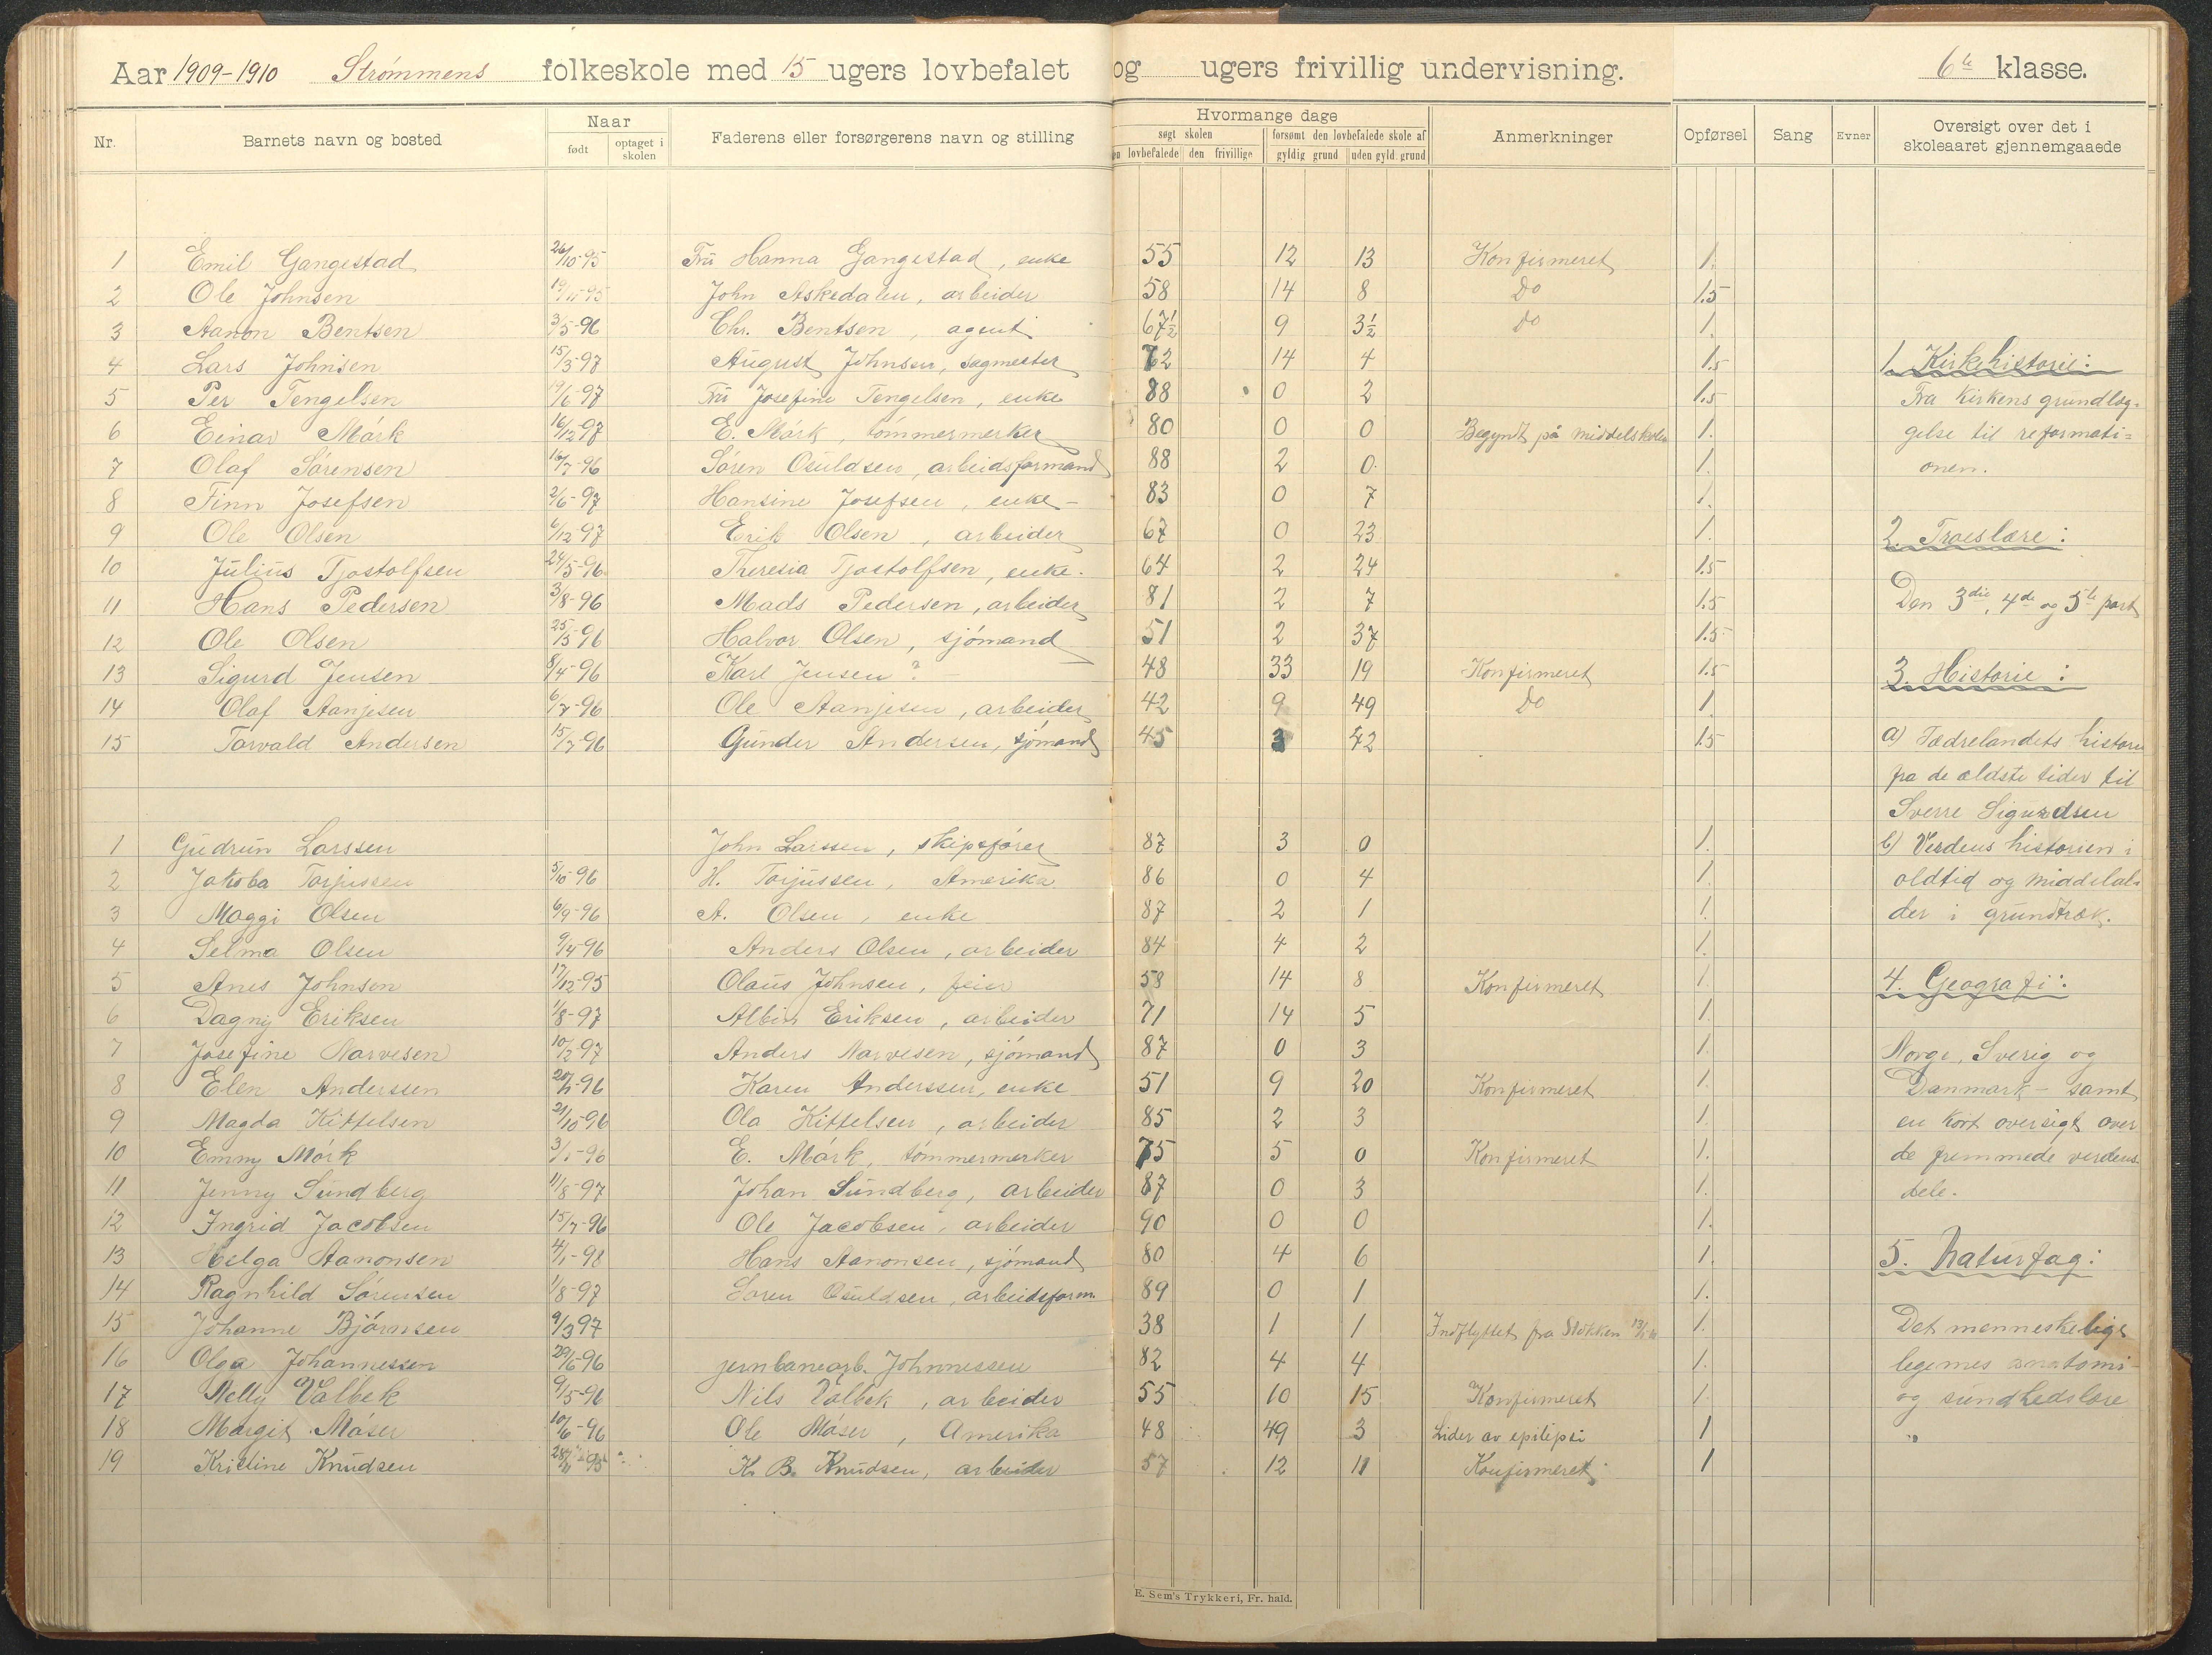 Aar 1909-1910 Strømmens folkeskole med 15 ugers lovbefalet og ugers frivillig undervisning. 6te klasse.
Nr. Barnets navn og bosted Naar født optaget i skolen Faderens eller forsørgerens navn og stilling Hvormange dage søgt skolen lovbefalede den frivillige forsømt den lovbefalede skole af gyldig grund uden gyld. grund Anmerkninger Opførsel Sang Evner Oversigt over det i skoleaaret gjennemgaaede
1 Emil Gangestad 26/10-95 Fru Hanna Gangestad, enke 55 12 13 Konfirmeret 1.
2 Ole Johnsen 19/11-95 John Askedalen, arbeider 58 14 8 Do 1.5
3 Aanon Bentsen 3/5-96 Chr. Bentsen, agent 67½ 9 3½ Do 1.
4 Lars Johnsen 15/3-97 August Johnsen, sagmester 72 14 4 1.5 1. Kirkehistorie:
5 Per Tengelsen 19/6-97 Fru Josefine Tengelsen, enke 88 0 2 1.5 Fra kirkens grundlæg-
6 Einar Mørk 16/12-97 E. Mørk, tømmermerker 80 0 0 Begyndt på middelskolen 1. gelse til reformati-
7 Olaf Sørensen 16/7-96 Søren Osuldsen, arbeidsformand 88 2 0. 1. onen.
8 Finn Josefsen 2/6-97 Hansine Josefsen, enke 83 0 7 1.
9 Ole Olsen 6/12-97 Erik Olsen, arbeider 67 0 23 1. 2. Troeslære:
10 Julius Tjostolfsen 24/5-96 Theresia Tjostolfsen, enke. 64 2 24 1.5
11 Hans Pedersen 3/8-96 Mads Pedersen, arbeider 81 2 7 1.5 Den 3die, 4de og 5te part
12 Ole Olsen 25/5-96 Halvor Olsen, sjømand 51 2 37 1.5
13 Sigurd Jensen 8/4-96 Karl Jensen? 48 33 19 Konfirmeret 1.5 3. Historie:
14 Olaf Aanjesen 6/7-96 Ole Aanjesen, arbeider 42 9 49 Do 1
15 Torvald Andersen 15/7-96 Gunder Andersen, sjømand 45 3 42 1.5 a) Fædrelandets historie
fra de ældste tider til
Sverre Sigurdsen
1 Gudrun Larssen John Larssen, skipsfører 87 3 0 1. b) Verdens historien i
2 Jakoba Torjussen 5/10-96 H. Torjussen, Amerika 86 0 4 1. oldtid og middelal-
3 Maggi Olsen 6/9-96 A. Olsen, enke 87 2 1 1. der i grundtræk.
4 Selma Olsen 9/4-96 Anders Olsen, arbeider 84 4 2 1.
5 Anes Johnsen 17/12-95 Olaus Johnsen, feier 58 14 8 Konfirmeret 1. 4. Geografi:
6 Dagny Eriksen 1/8-97 Albin Eriksen, arbeider 71 14 5 1.
7 Josefine Narvesen 10/2-97 Anders Narvesen, sjømand 87 0 3 1. Norge, Sverig og
8 Elen Anderssen 20/4-96 Karen Anderssen, enke 51 9 20 Konfirmeret 1. Danmark - samt
9 Magda Kittelsen 21/10-96 Ola Kittelsen, arbeider 85 2 3 1. en kort oversigt over
10 Emmy Mørk 3/1-96 E. Mørk, tømmermerker 75 5 0 Konfirmeret 1. de fremmede verdens-
11 Jenny Sundberg 11/8-97 Johan Sundberg, arbeider 87 0 3 1. dele.
12 Ingrid Jacobsen 15/7-96 Ole Jacobsen, arbeider 90 0 0 1.
13 Helga Aanonsen 4/1-98 Hans Aanonsen, sjømand 80 4 6 1. 5. Naturfag:
14 Ragnhild Sørensen 1/8-97 Søren Osuldsen, arbeidsform. 89 0 1 1.
15 Johanne Bjørnsen 9/3 97 38 1 1 Indflyttet fra Stokken 1. Det menneskelige
16 Olga Johannessen 29/6-96 jernbanearb. Johnnessen 82 4 4 1. legemes anatomi
17 Nelly Valbek 9/5-96 Nils Valbek, arbeider 55 10 15 Konfirmeret 1. og sundhedslære
18 Margit Måser 10/6-96 Ole Måser, Amerika 48 49 3 Lider av epilepsi 1
19 Kristine Knudsen 28/11 95 K. B. Knudsen, arbeider 57 12 11 Konfirmeret 1
E. Sem's Trykkeri, Fr. hald.